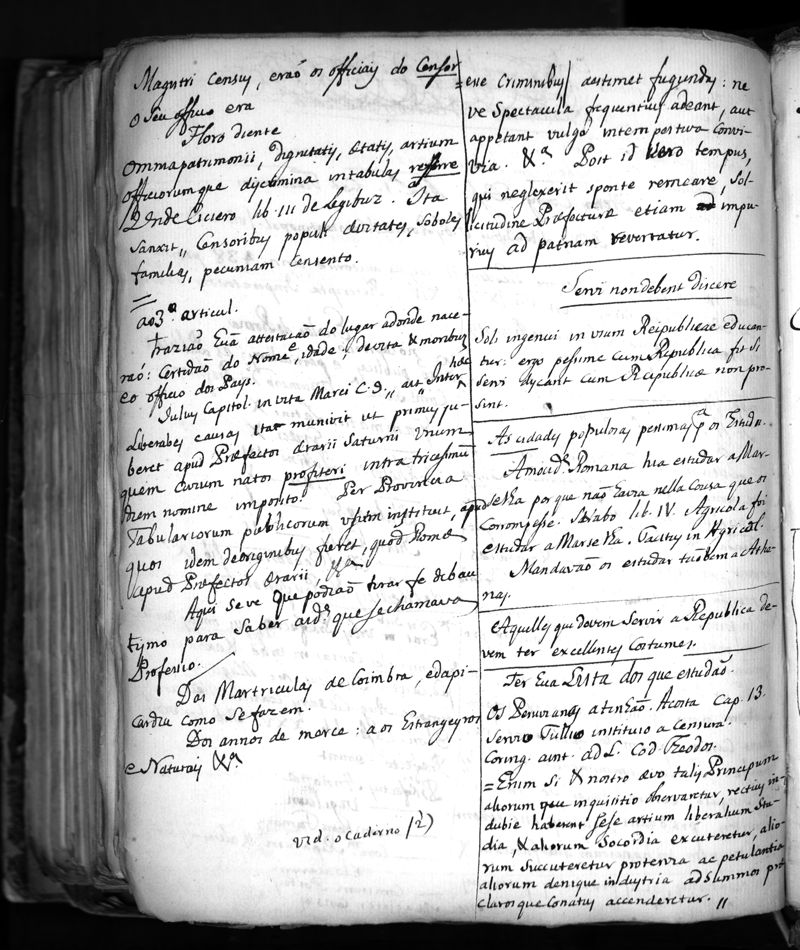 Magistri Census, eraõ os officiais do Censor
o Seu officio era
Floro dicente
Omnia patrimonii, dignitatis, ætatis, artium
officiorumque discrimina in tabulas referre
Unde Cicero lib. III de Legibus. Ita
Sanxit,, Censoribus populi ævitates, soboles
familias, pecuniam Censento.
ao 3º articul.
Traziaõ huã attestacaõ do lugar adonde nace-
raõ: Certidaõ do Nome, idade, de vita & moribus
e o officio dos Pays.
Julius Capitol. in vita Marci C. 9,, aut Inter hæc
Liberales causas ita munivit ut primus ju-
beret apud Præfectos ærarii Saturni Unum
quem civium natos profiteri intra tricesimũ
diem nomine imposito. Per Provincias
Tabulariorum publicorum usum instituit, apud
quos idem de originibus fieret, quod Romæ
apud Præfectos ærarii, &ª
Aqui se ve que podiaõ tirar fe de bau
tismo para Saber a idᵉ que se chamava
Professio.
Das Martriculas de Coimbra, e da pi-
cardia como Se fazem.
Dos annos de merce: aos Estrangeyros
e Naturais &ª
vid. o Caderno (2)
=esse Criminibus æstimet fugiendas: ne
ve Spectacula frequentius adeant, aut
appetant vulgo intempestiva Convi-
via. &ª Post id vero tempus,
qui neglexerit sponte remeare, Sol-
licitudine Præfecturæ etiam impu-
rius ad patriam revertatur.
Servi non debent discere
Soli ingenui in usum Reipublicae educan-
tur: ergo pessime cum Republica fit si
servi dyscant cum Reipublicæ non pro-
sint.
As cidades populosas pessimas pª os Estudos.
A mocidᵉ Romana hia estudar a Mar-
selha por que naõ havia nella Cousa que os
Corrompesse. Strabo lib. IV. Agricola foi
estudar a Marselha. Tacitus in Agricol.
Mandavaõ os estudar taõbem a Athe-
nas.
Aquelles que devem Servir a Republica de-
vem ter excellentes Costumes.
Ter huã Lista dos que estudaõ.
Os Peruvianos a tinhaõ. Acosta Cap. 13.
Servio Tullio instituio a Censura.
Coring. aint. ad L. Cod. Theodos.
=Enim Si & nostro ævo talis Principum
aliorum que inquisitio observaretur, rectius in-
dubie haberent sese artium liberalium Stu-
dia, & aliorum Socordia excuteretur, alio-
rum Succuteretur protervia ac petulantia
aliorum denique industria ad Summos præ
claros que Conatus accenderetur.,,